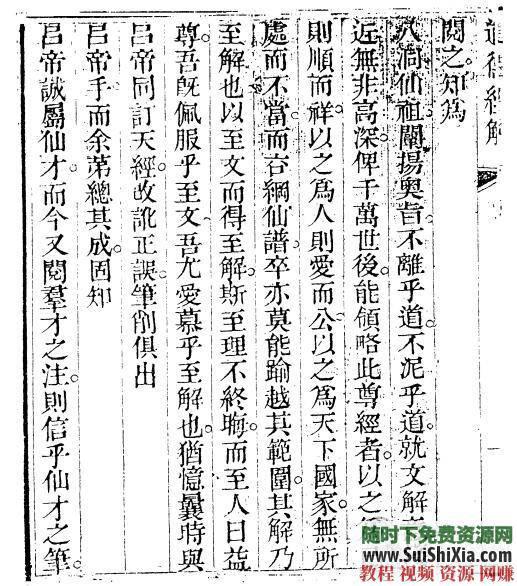 道德經解
閱之知爲
八洞仙祖闡揚奧旨。不離乎道。不泥乎道。就文解
近。無非高深。俾千萬世後。能領略此尊經者。以之
則順而祥。以之爲人則愛而公。以之爲天下國家。無所
處而不當。而綱仙譜。卒亦莫能踰越其範圍。其解乃
至解也。以至文而得至解。斯至理不終晦。而至人日益
尊。吾旣佩服乎至文。吾尤愛慕乎至解也。猶憶曩時與
呂帝同訂天經。改訛正誤。筆削俱出
呂帝手。而余第總其成。固知
呂帝誠屬仙才。而今又閱羣才之注。則信乎仙才之筆。
随时下免费资源网
www.SuiShiXia.com
教程 视频 资源 网赚